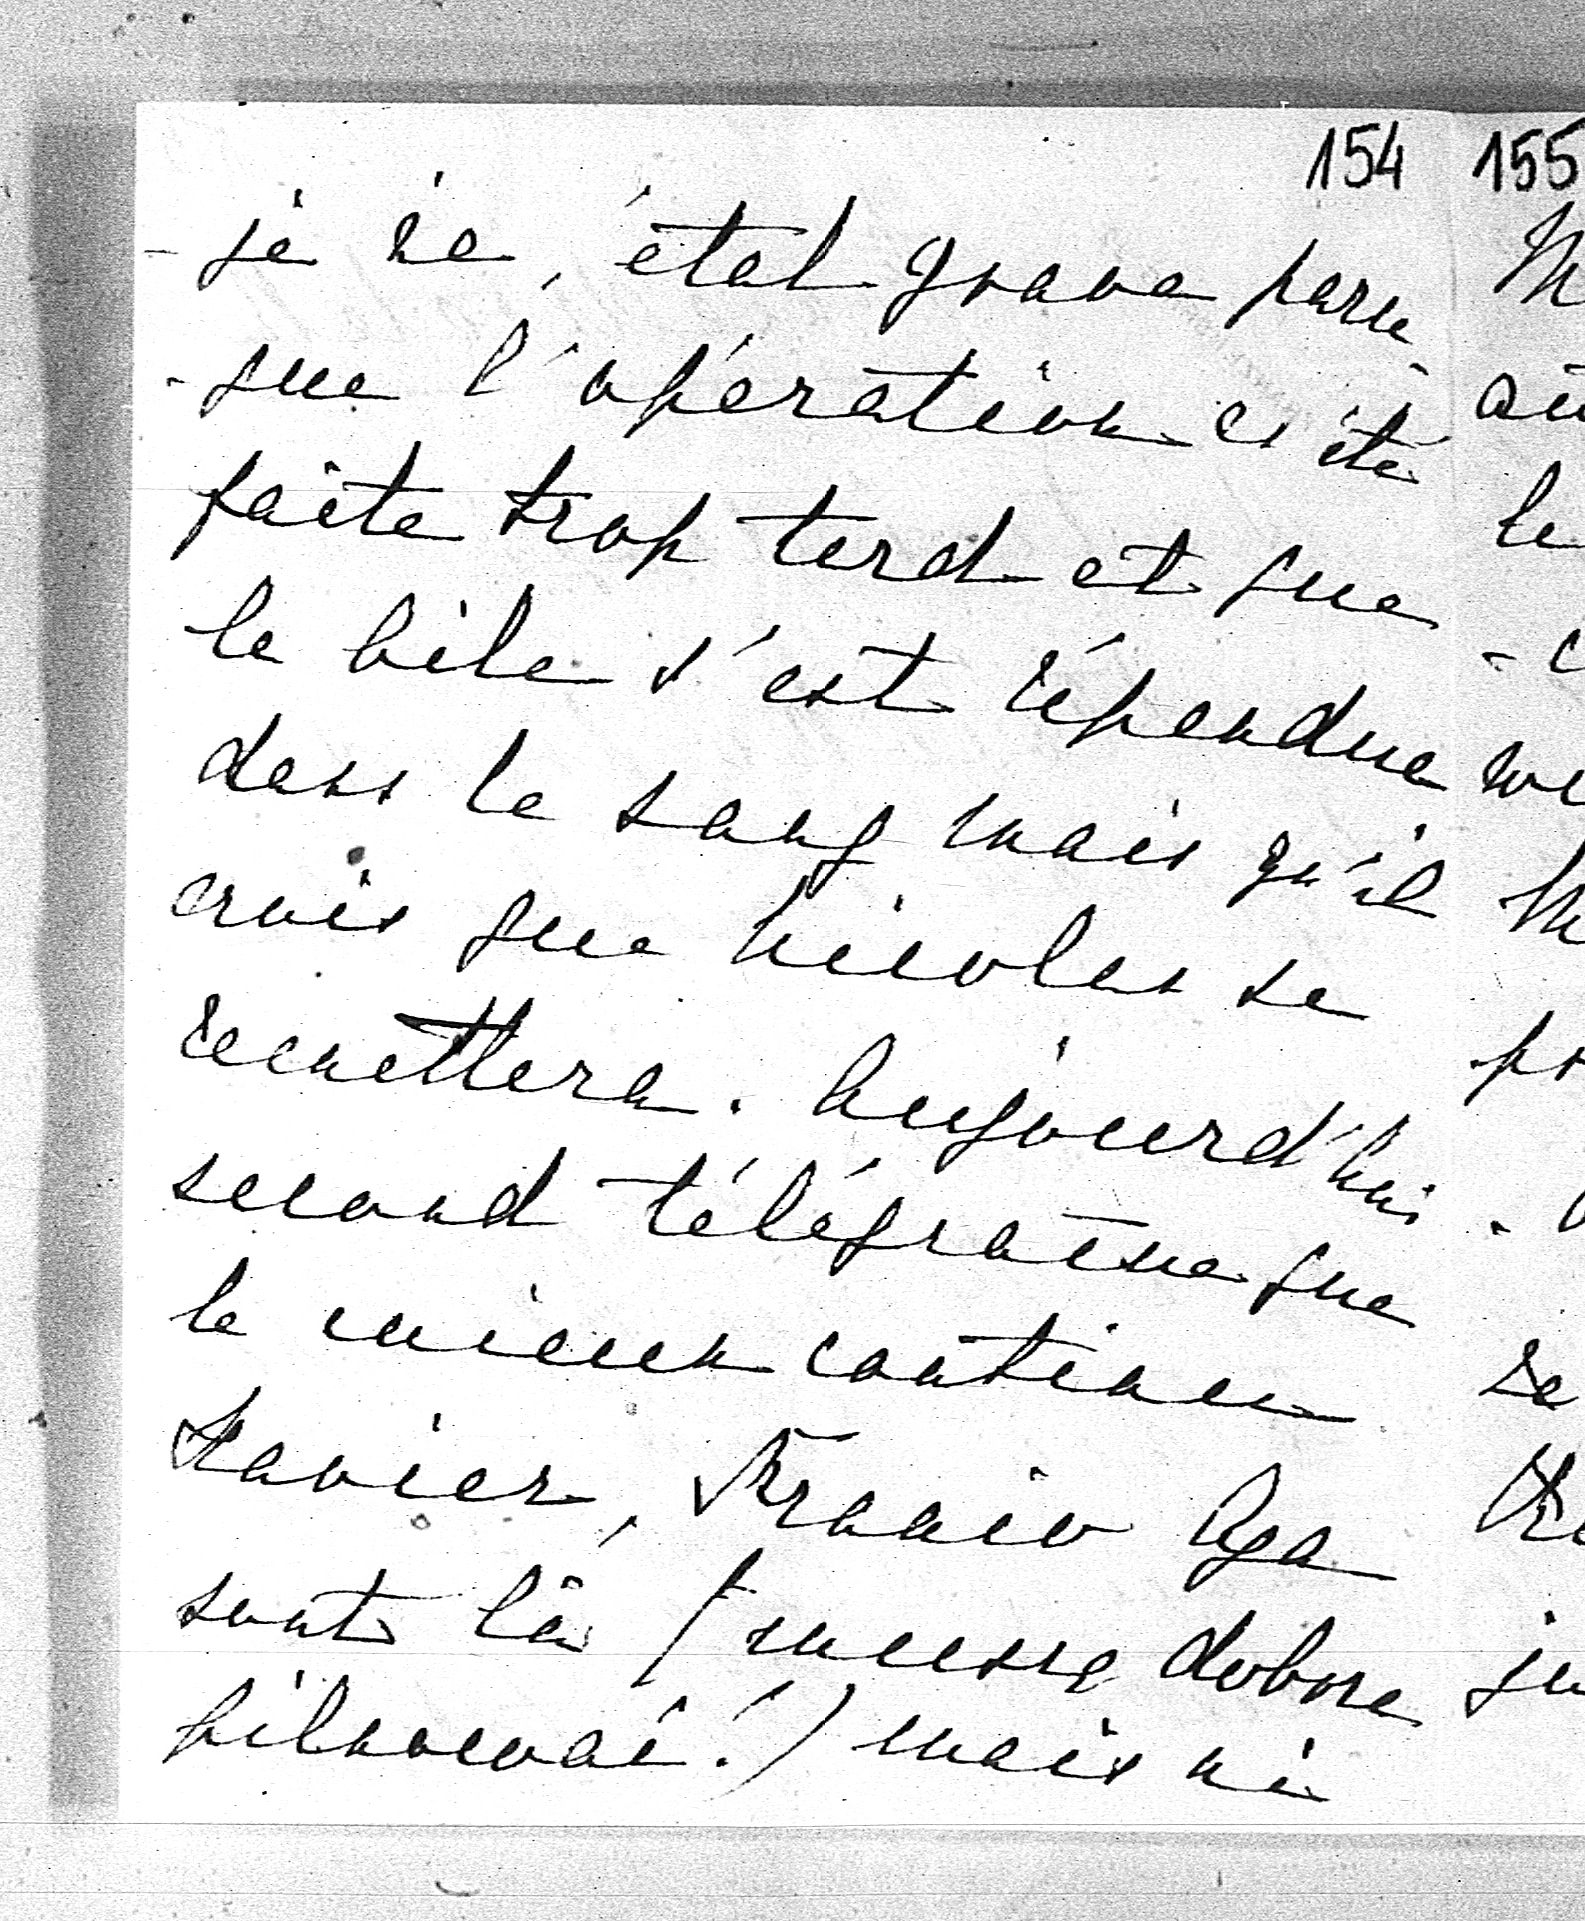 154 155
- je re, état grave parce
- que l'opération a été
faite trop tard et que
la bile s'est répandue
dans le sang mais qu'il
crois que Nicolas se
remettera. Aujourd'hui
second télégramme que
le mieux continue
Xavier, Franio Aga
sont là (muszą dobrze
pilnować!) mais ni